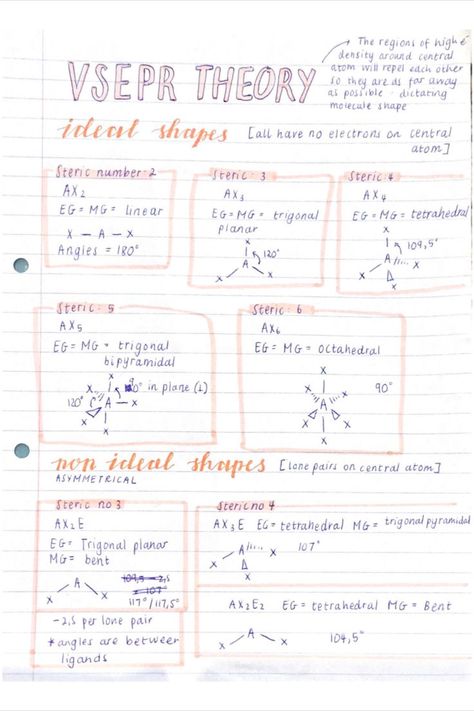 VSEPR THEORY
The regions of high e⁻
density around central
atom will repel each other
so they are as far away
as possible - dictating
molecule shape
ideal shapes [all have no electrons on central
atom]
Steric number · 2
AX₂
EG = MG = linear
X — A — X
Angles = 180°
Steric · 3
AX₃
EG = MG = trigonal
planar
X
120°
A
X X
Steric 4
AX₄
EG = MG = tetrahedral
X
109,5°
A
X X
X
Steric · 5
AX₅
EG = MG = trigonal
bipyramidal
X
X 90° in plane (⊥)
120° A — X
X
X
Steric · 6
AX₆
EG = MG = octahedral
X
X X 90°
A
X X
X
non ideal shapes [lone pairs on central atom]
ASYMMETRICAL
Steric no 3
AX₂E
EG = Trigonal planar
MG = bent
A
X X
109,5 - 2,5
= 107°
117° / 117,5°
- 2,5 per lone pair
* angles are between
ligands
Steric no 4
AX₃E EG = tetrahedral MG = trigonal pyramidal
A X 107°
X X
AX₂E₂ EG = tetrahedral MG = Bent
A
X X 104,5°